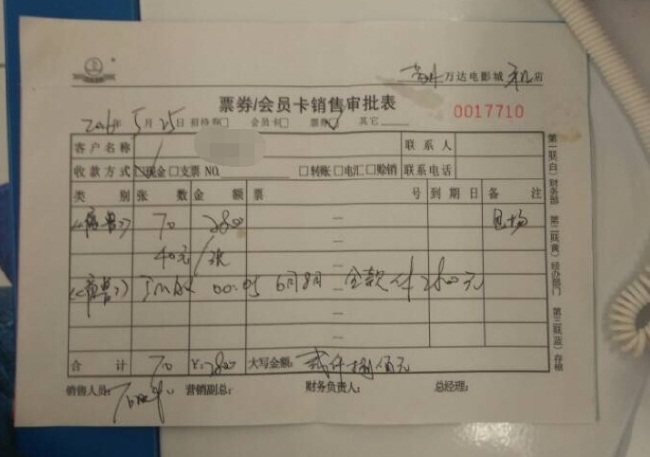 万达电影城 店
票券/会员卡销售审批表
0017710
2016年5月25日 招待券□ 会员卡□ 票券 其它
客户名称 联系人
收款方式 现金 □支票 NO. □转账 □电汇 □赊销 联系电话
类别 张数 金额 票号 到期日 备注
《魔兽》 70 2800 包场
40元/张
《魔兽》 00:05 6月8日 全款 2800元
合计 70 ¥:2800 大写金额: 贰仟捌佰元
销售人员: 营销副总: 财务负责人: 总经理:
第一联(白)财务部 第二联(黄)经办部门 第三联(蓝)存根